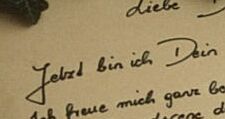 Liebe D
Jetzt bin ich Dein
Ich freue mich ganz be